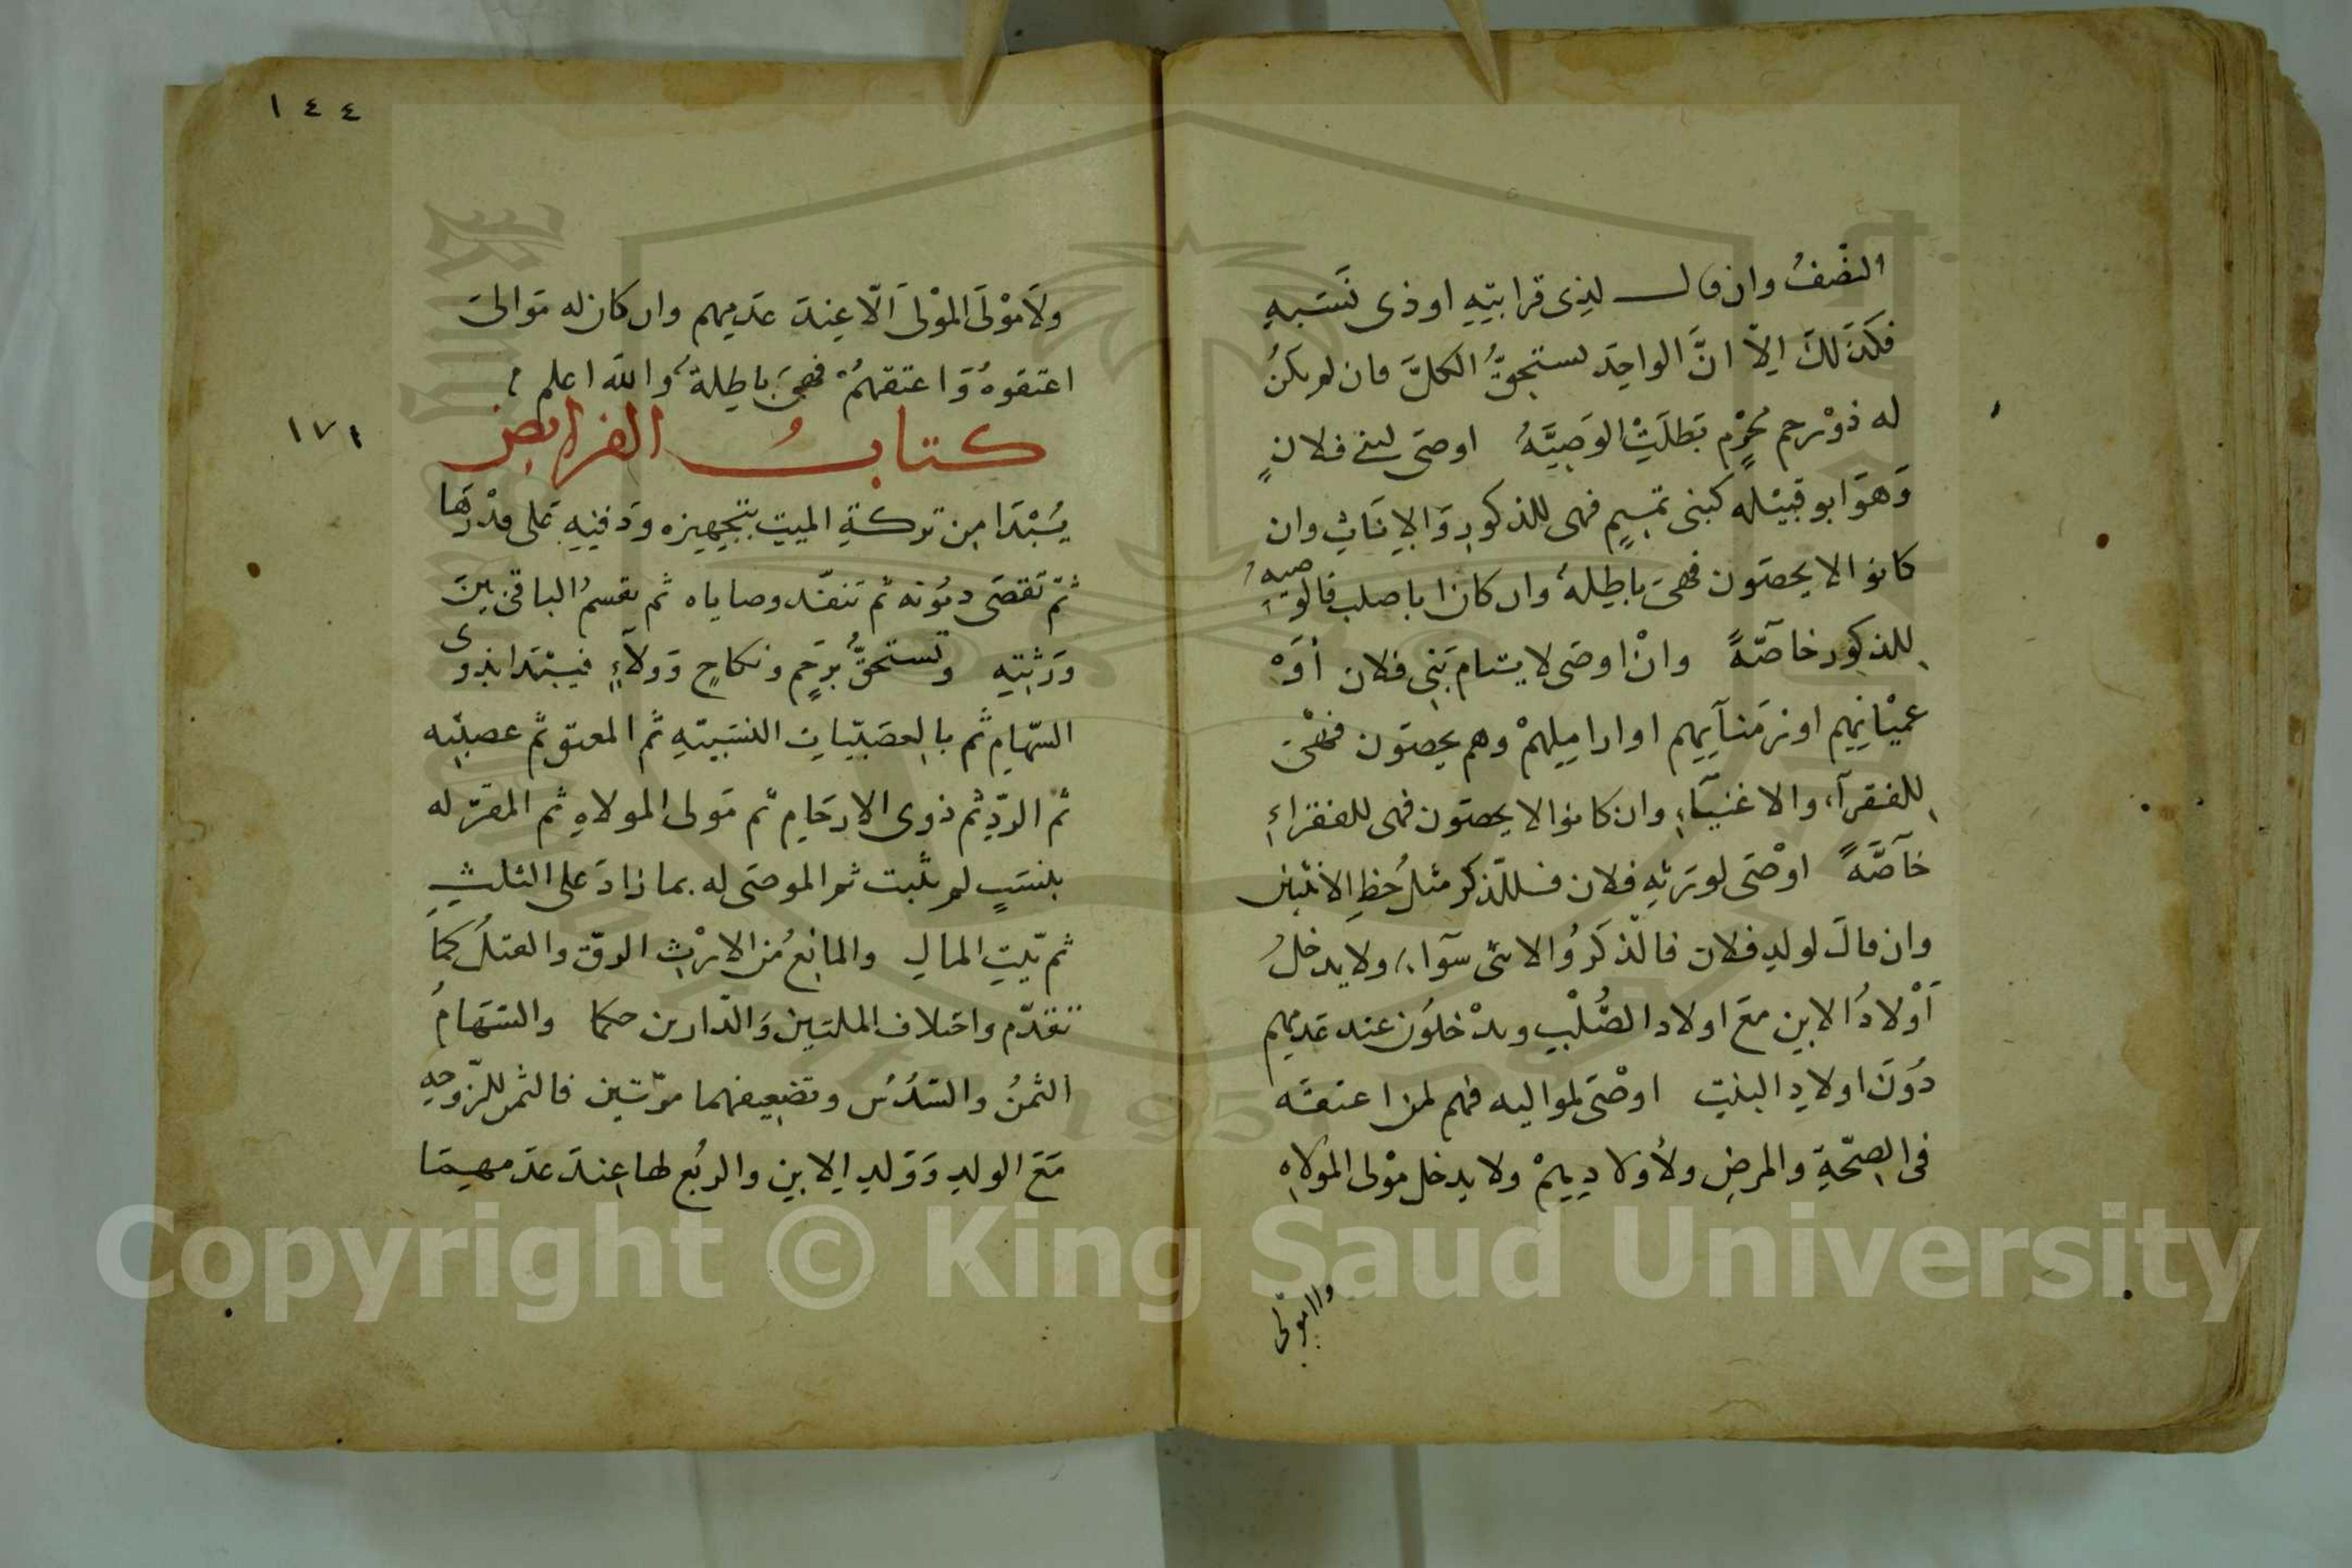 النّصْفُ وان قال لذِى قرابتِهِ او ذى نَسَبِهِ
فكَذَلكَ اِلاّ انَّ الواحِدَ يستحِقُّ الكلَّ فان لم يكنُ
له ذوْ رحم مُحْرَمٍ بَطلَتْ الوَصِيَّةُ اوصَى لبنى فلانٍ
وَهوَ ابو قبيْلة كبنى تمِيمٍ فهى للذكورِ وَالاِنَاثِ وان
كانوا لا يحصَون فهىَ باطِلةٌ وان كان ابا صلب فالوصيةُ
لِلذكورِ خاصّةً وانْ اوصَى لايتام بَنِى فلان أوَْ
عميْانِهِم او زمَنآيِهم او اراملِهمْ وهم يحصَون فهْىَ
لِلفقرآءِ والاغنيآءِ وان كانوا لا يحصَون فهى للفقراءِ
خآصَّةً اوْصَى لورَثةِ فلان فللذّكر مثلُ حَظِ الانثيين
وان قالَ لولدِ فلان فالذّكَرُ والانثى سوآء ولا يدخلُ
اَوْلادُ الابنِ معَ اولاد الصُّلْبِ ويدْخلوُن عند عَدمِهم
دُوَنَ اولادِ البنتِ اوصْىَ لمواليه فهم لمن اعتقَه
فى الصِحّةِ والمرضِ ولأولادِهِمْ ولا يدخل موْلى الموَلاةِ
ولا مولى
١٤٤
ولاَ موْلَى المَوْلىَ الّا عِندَ عَدمِهم وان كان له مَوالىَ
اعتقوهُ وَاعتقهُمْ فهىَ باطِلةٌ والله اعلم
١٧١
كتابُ الفرايض
يُبْتَدَا مِن تركةِ الميتِ بتجهيزه ودَفنِهِ عَلى قدْرهَا
ثمّ تقضَى ديُونه ثم تنفّذ وصاياه ثم يقسمُ الباقى بينَ
وَرَثتِهِ وتستحقُّ برَحِمٍ ونكاحٍ وَولآءٍ فيبْتدَا بذوى
السّهامِ ثمّ بالعصَبّياتِ النسَبيّةِ ثم المعتق ثم عصبتِه
ثم الردِّ ثم ذوى الارحَامِ ثم مَولى المولاةِ ثم المقرّ له
بنسَبٍ لم يثبت ثم الموصَى له بما زادَ على الثلثِ
ثم بَيتِ المالِ والمانِعُ مِن الارْثِ الرقّ والقتلُ كمَا
تقدّم واختلاف الملتين وَالدّارين حكما والسّهَامُ
الثمنُ والسّدُسُ وتضعِيفهما مرّتين فالثمن للزّوجةِ
مَعَ الولدِ وَوَلدِ الابنِ والربُع لها عِندَ عدَمهِمَا
Copyright © King Saud University